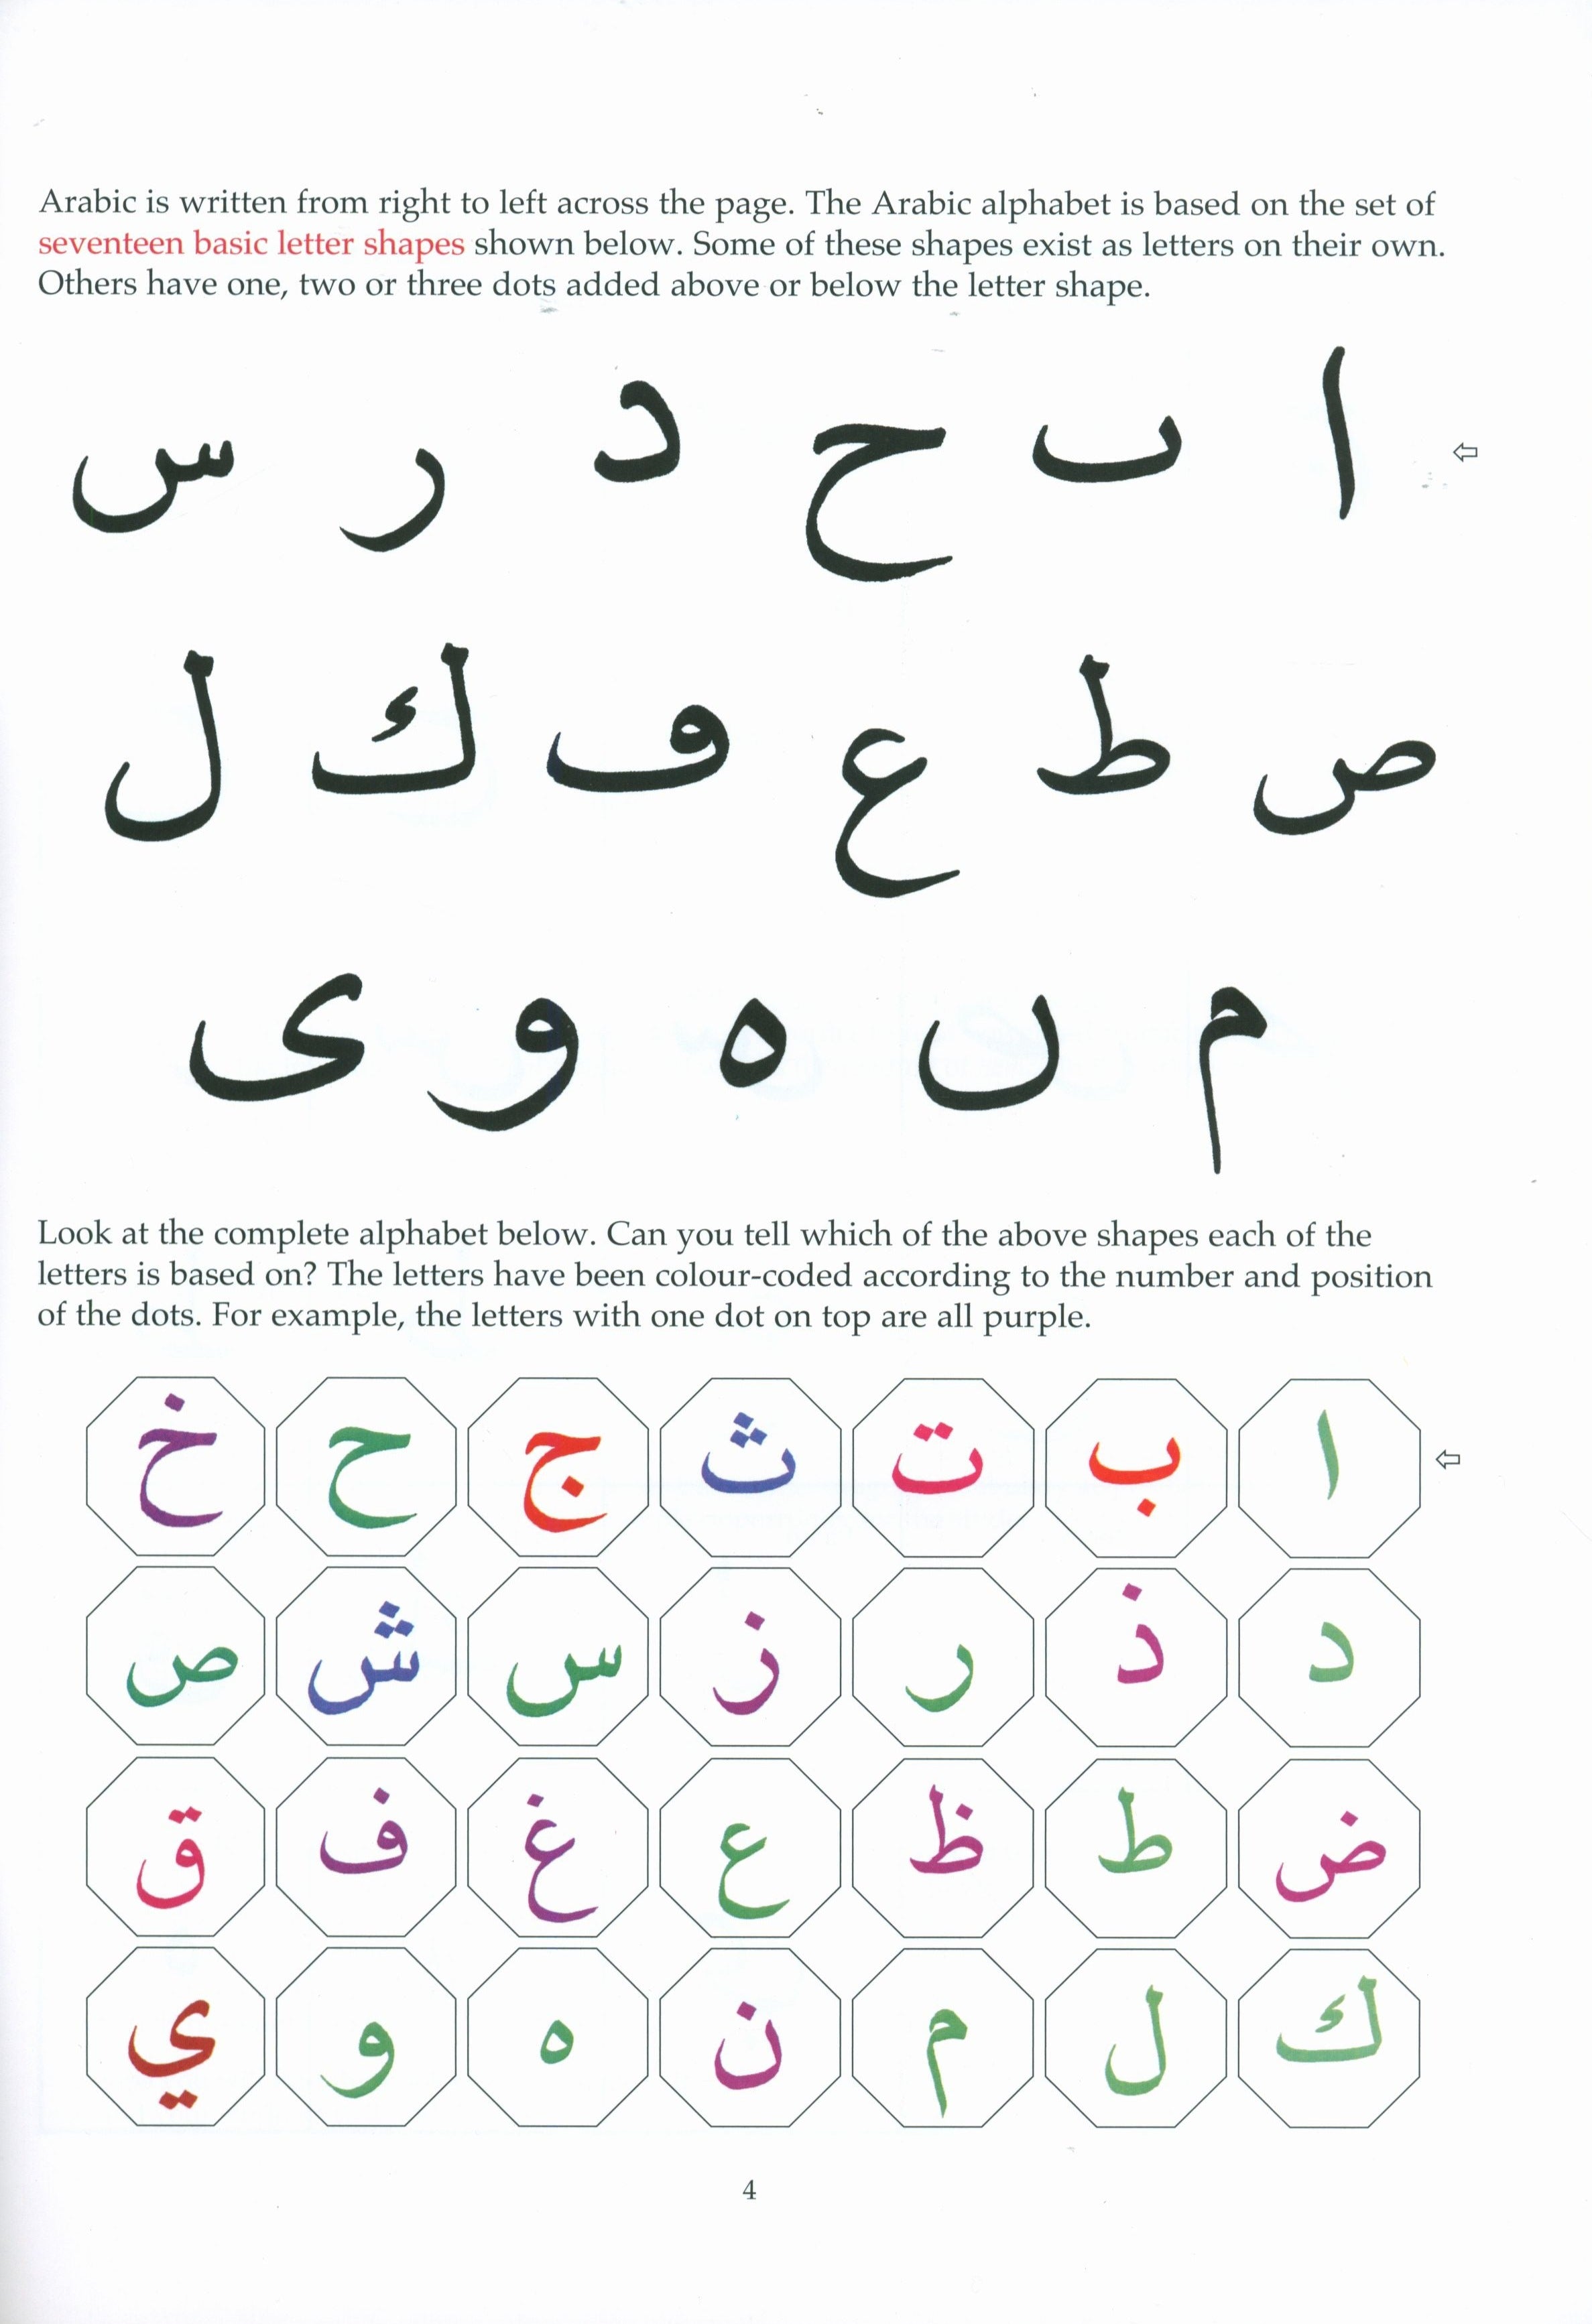 Arabic is written from right to left across the page. The Arabic alphabet is based on the set of
seventeen basic letter shapes shown below. Some of these shapes exist as letters on their own.
Others have one, two or three dots added above or below the letter shape.
ا ٮ ح د ر س
ص ط ع ڡ ك ل
م ں ه و ى
Look at the complete alphabet below. Can you tell which of the above shapes each of the
letters is based on? The letters have been colour-coded according to the number and position
of the dots. For example, the letters with one dot on top are all purple.
ا ب ت ث ج ح خ
د ذ ر ز س ش ص
ض ط ظ ع غ ف ق
ك ل م ن ه و ي
4